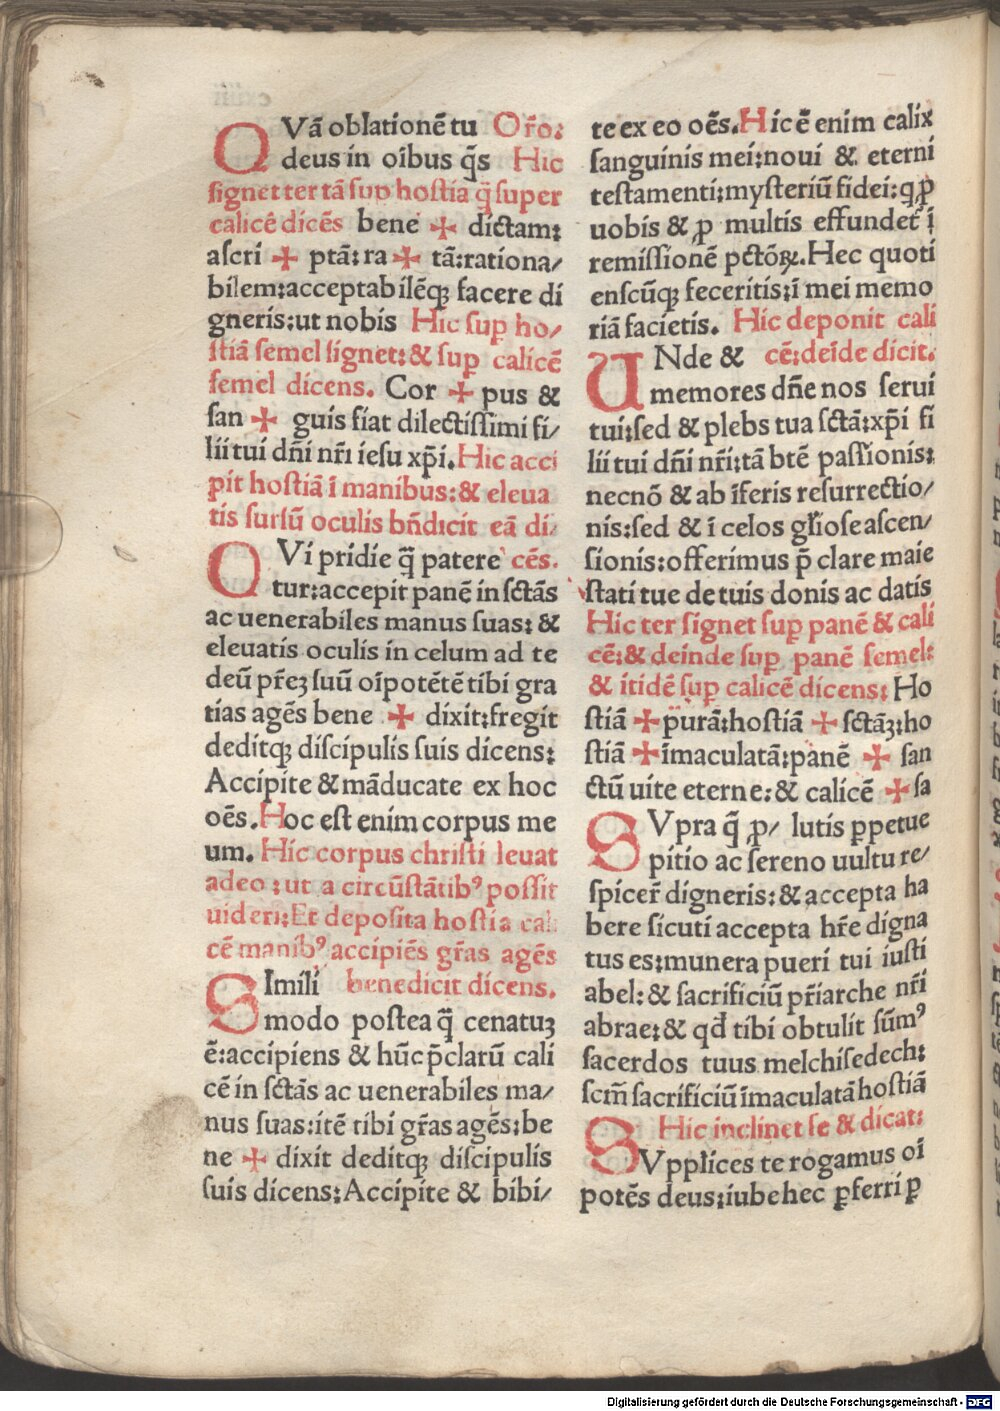 QVā oblationē tu Oro̅:
deus in oi̅bus q̅s Hic
signet ter tā sup̲ hostiā q̅ super
calicē dicēs bene ✠ dictam:
ascri ✠ ptā: ra ✠ tā: rationa/
bilem: acceptabilēqꝫ facere di
gneris: ut nobis Hic sup̲ ho/
stiā semel signet: & sup̲ calicē
semel dicens. Cor ✠ pus &
san ✠ guis fiat dilectissimi fi/
lii tui dn̅i nr̅i iesu xp̅i. Hic acci
pit hostiā i̅ manibus: & eleua
tis sursū oculis bn̅dicit eā di/
QVi pridie q̅ patere cēs.
tur: accepit panē in sctās
ac uenerabiles manus suas: &
eleuatis oculis in celum ad te
deū pr̅eꝫ suū oi̅potētē tibi gra
tias agēs bene ✠ dixit: fregit
deditqꝫ discipulis suis dicens:
Accipite & māducate ex hoc
oēs. Hoc est enim corpus me
um. Hic corpus christi leuat
adeo: ut a circūstātibꝰ possit
uideri: Et deposita hostia cali
cē manibꝰ accipiēs gr̅as agēs
SImili benedicit dicens.
modo postea q̅ cenatuꝫ
ē: accipiens & hūc p̅clarū cali
cē in sctās ac uenerabiles ma/
nus suas: itē tibi gr̅as agēs: be
ne ✠ dixit deditqꝫ discipulis
suis dicens: Accipite & bibi/
te ex eo oēs. Hic ē enim calix
sanguinis mei: noui & eterni
testamenti: mysteriū fidei: q ꝓ
uobis & ꝓ multis effundet̅ i̅
remissionē pctōꝝ. Hec quoti
enscūqꝫ feceritis: i̅ mei memo
riā facietis. Hic deponit cali
UNde & cē: dei̅de dicit.
memores dn̅e nos serui
tui: sed & plebs tua sctā: xp̅i fi
lii tui dn̅i nr̅i: tā btē passionis:
necnō & ab i̅feris resurrectio/
nis: sed & i̅ celos gl̅iose ascen/
sionis: offerimus p̅clare maie
stati tue de tuis donis ac datis
Hic ter signet sup̲ panē & cali
cē: & deinde sup̲ panē semel:
& itidē sup̲ calicē dicens: Ho
stiā ✠ purā: hostiā ✠ sctāꝫ: ho
stiā ✠ i̅maculatā: panē ✠ san
ctū uite eterne: & calicē ✠ sa
SVpra q̅ ꝓ/ lutis ꝑpetue
pitio ac sereno uultu re/
spicer̅ digneris: & accepta ha
bere sicuti accepta hr̅e digna
tus es: munera pueri tui iusti
abel: & sacrificiū pr̅iarche nr̅i
abrae: & qd̅ tibi obtulit sūmꝰ
sacerdos tuus melchisedech:
scm̅ sacrificiū i̅maculatā hostiā
Hic inclinet se & dicat:
SVpplices te rogamus oi̅
potēs deus: iube hec ꝑferri ꝑ
Digitalisierung gefördert durch die Deutsche Forschungsgemeinschaft - DFG